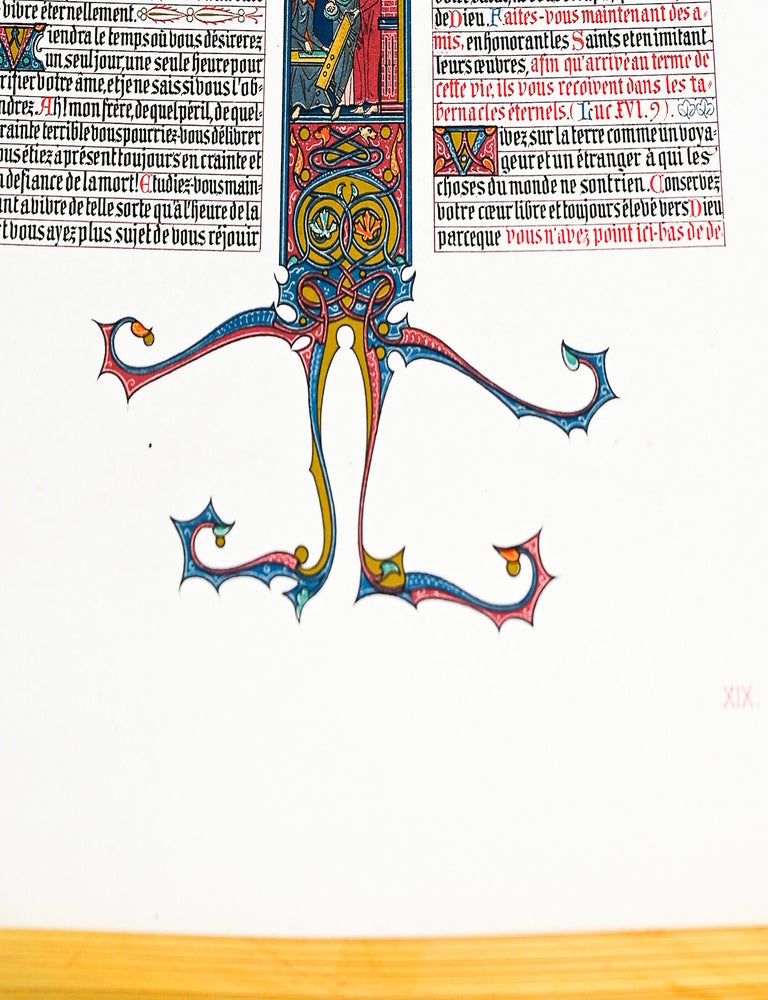 vibre éternellement.
Viendra le temps où vous désirerez
un seul jour, une seule heure pour
rifier votre âme, et je ne sais si vous l'ob-
ndrez. Ah! mon frère, de quel péril, de quel-
rainte terrible vous pourriez-vous délibrer
ous étiez a présent toujours en crainte et
n defiance de la mort! Etudiez-vous main-
nt a vibre de telle sorte qu'à l'heure de la
t vous ayez plus sujet de vous réjouir
de Dieu. Faites-vous maintenant des a-
mis, en honorant les Saints et en imitant
leurs œuvres, afin qu'arrivé au terme de
cette vie, ils vous reçoivent dans les ta-
bernacles éternels. (Luc XVI. 9).
Vivez sur la terre comme un voya-
geur et un étranger à qui les
choses du monde ne sont rien. Conservez
votre cœur libre et toujours élevé vers Dieu
parceque vous n'avez point ici-bas de de
XIX.